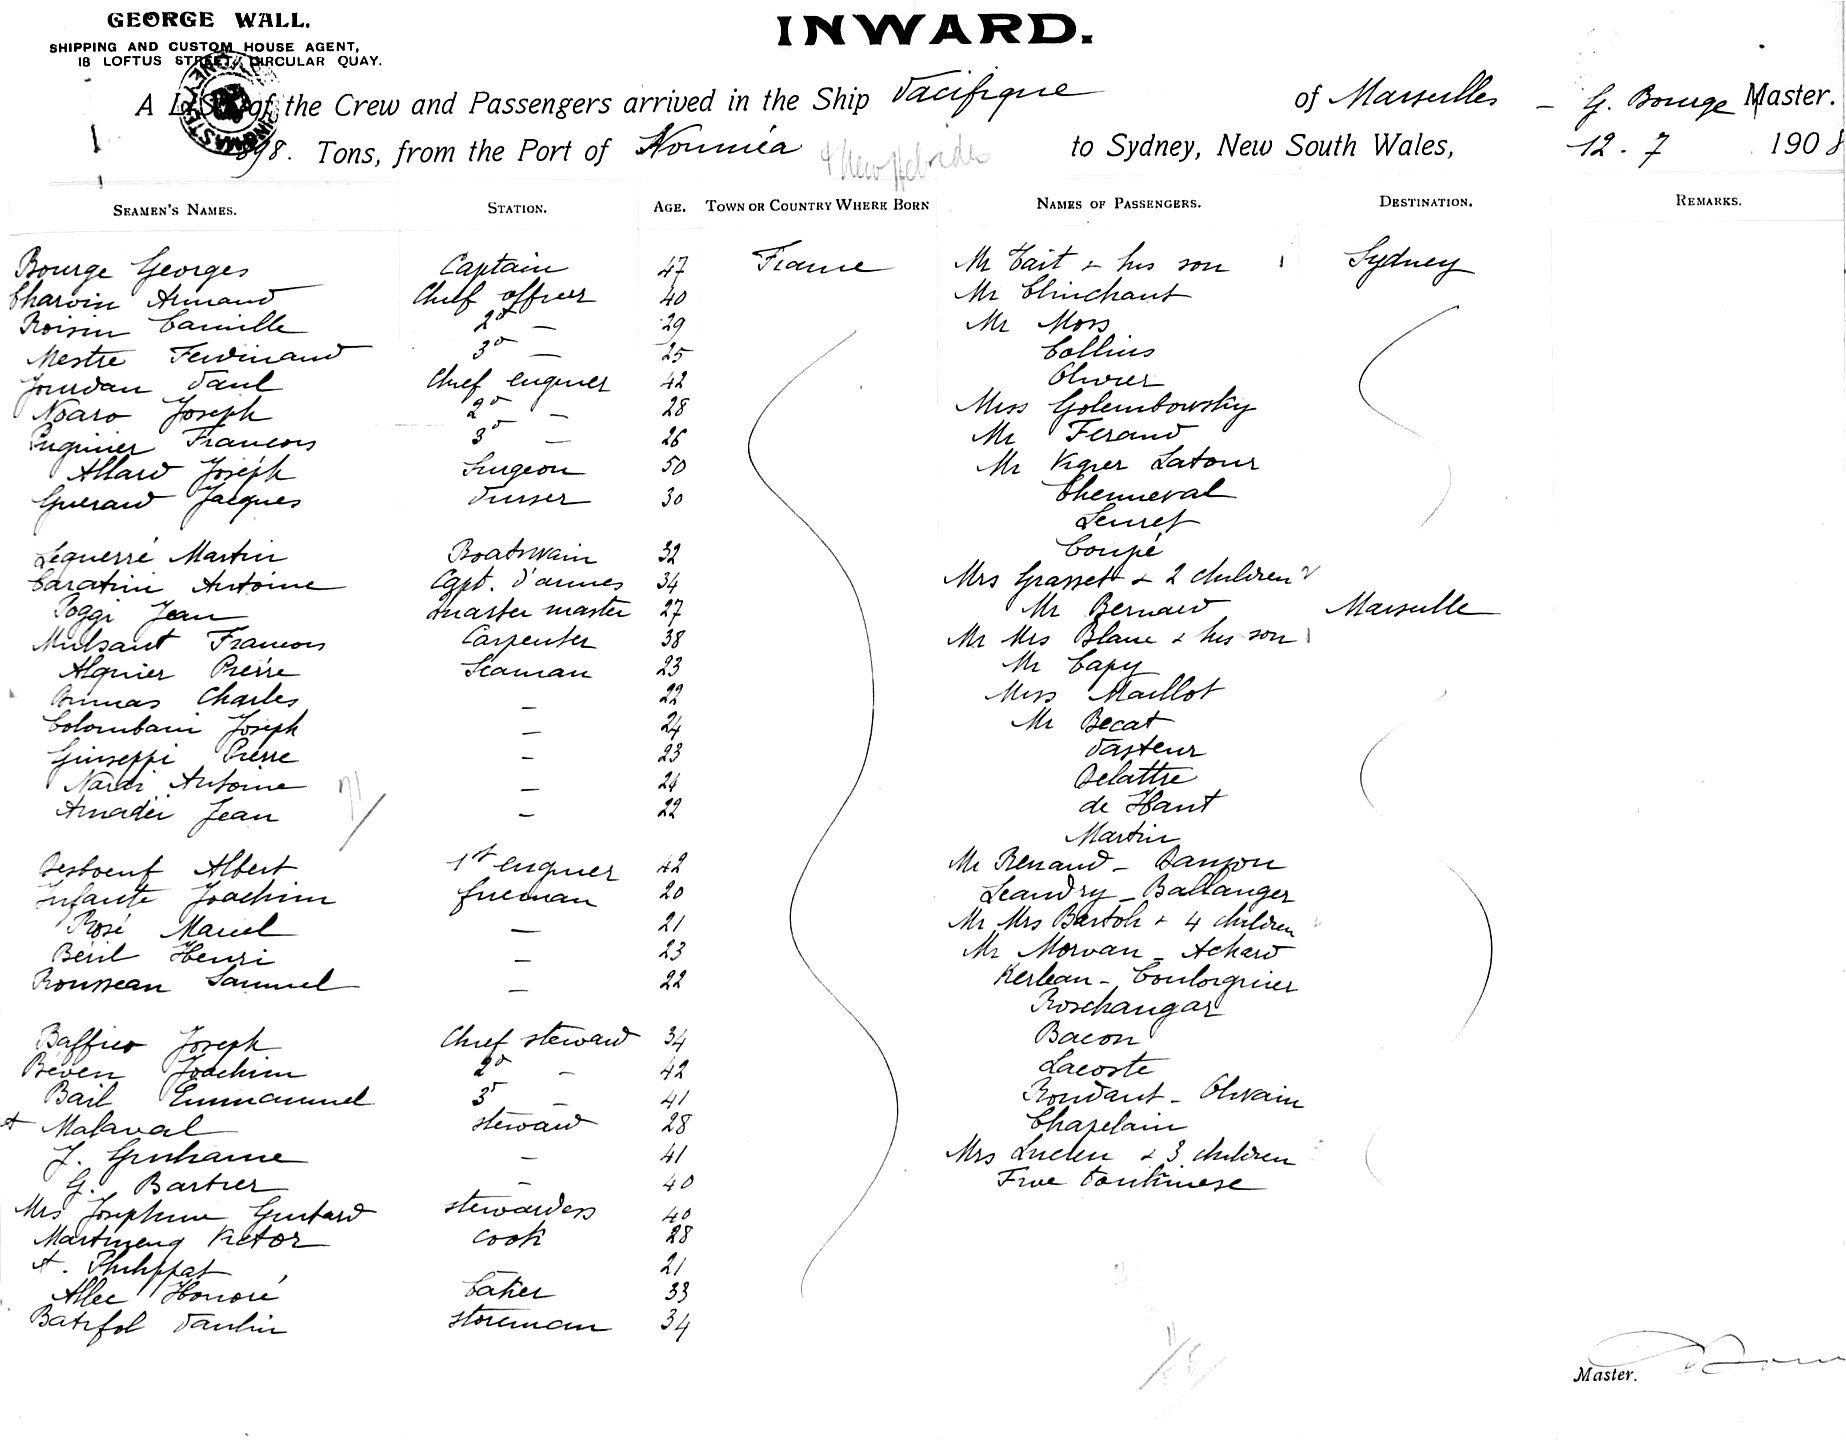 GEORGE WALL.
SHIPPING AND CUSTOM HOUSE AGENT,
18 LOFTUS STREET, CIRCULAR QUAY.
INWARD.
A List of the Crew and Passengers arrived in the Ship Pacifique of Marseilles – G. Bourge Master.
Tons, from the Port of Nouméa & New Hebrides to Sydney, New South Wales, 12.7 1908
SEAMEN'S NAMES. STATION. AGE. TOWN OR COUNTRY WHERE BORN NAMES OF PASSENGERS. DESTINATION. REMARKS.
Bourge Georges Captain 47 France Mr Tait & his son Sydney
Charvin Armand Chief officer 40 Mr Clinchant
Roisin Camille 2d — 29 Mr Moss
Mestre Ferdinand 3d — 25 Collins
Jourdan Paul Chief engineer 42 Olivier
Noaro Joseph 2d — 28 Miss Golembowsky
Puginier Francois 3d — 26 Mr Feraud
Allard Joseph Surgeon 50 Mr Viguier Latour
Guerard Jacques Purser 30 Chenneval
Leuref
Coupé
Lequerré Martin Boatswain 32
Caratini Antoine Capt. d'armes 34 Mrs Grasset & 2 children
Poggi Jean quarter master 27 Mr Bernard Marseille
Mulsant Francois Carpenter 38 Mr Mrs Blanc & his son
Alquier Pierre Seaman 23 Mr Capy
Charles — 22 Miss Maillot
Colombani Joseph — 24 Mr Becat
Giuseppi Pierre — 23 Pasteur
Nardi Antoine — 24 Delattre
Amadéi Jean — 22 de Haut
Martin
Desboeuf Albert 1st engineer 42 Mr Renaud – Danjou
Infante Joachim fireman 20 Leandry – Ballanger
Rosé Marcel — 21 Mr Mrs Bartoli & 4 children
Béril Henri — 23 Mr Morvan – Achard
Rousseau Samuel — 22 Kerleau –
Roschangar
Baffico Joseph Chief steward 34 Bacon
Béven Joachim 2d — 42 Lacoste
Bail Emmanuel 3d — 41 Rondaut – Olivain
A Malaval steward 28 Chapelain
J. — 41 Mrs Lucien & 3 children
G. Bartier — 40 Five tonkinese
Mrs Josephine Guitard stewardess 40
Martineng Victor cook 28
A. Philippat 21
Allec Honoré baker 33
Batifol Paulin storeman 34
Master.